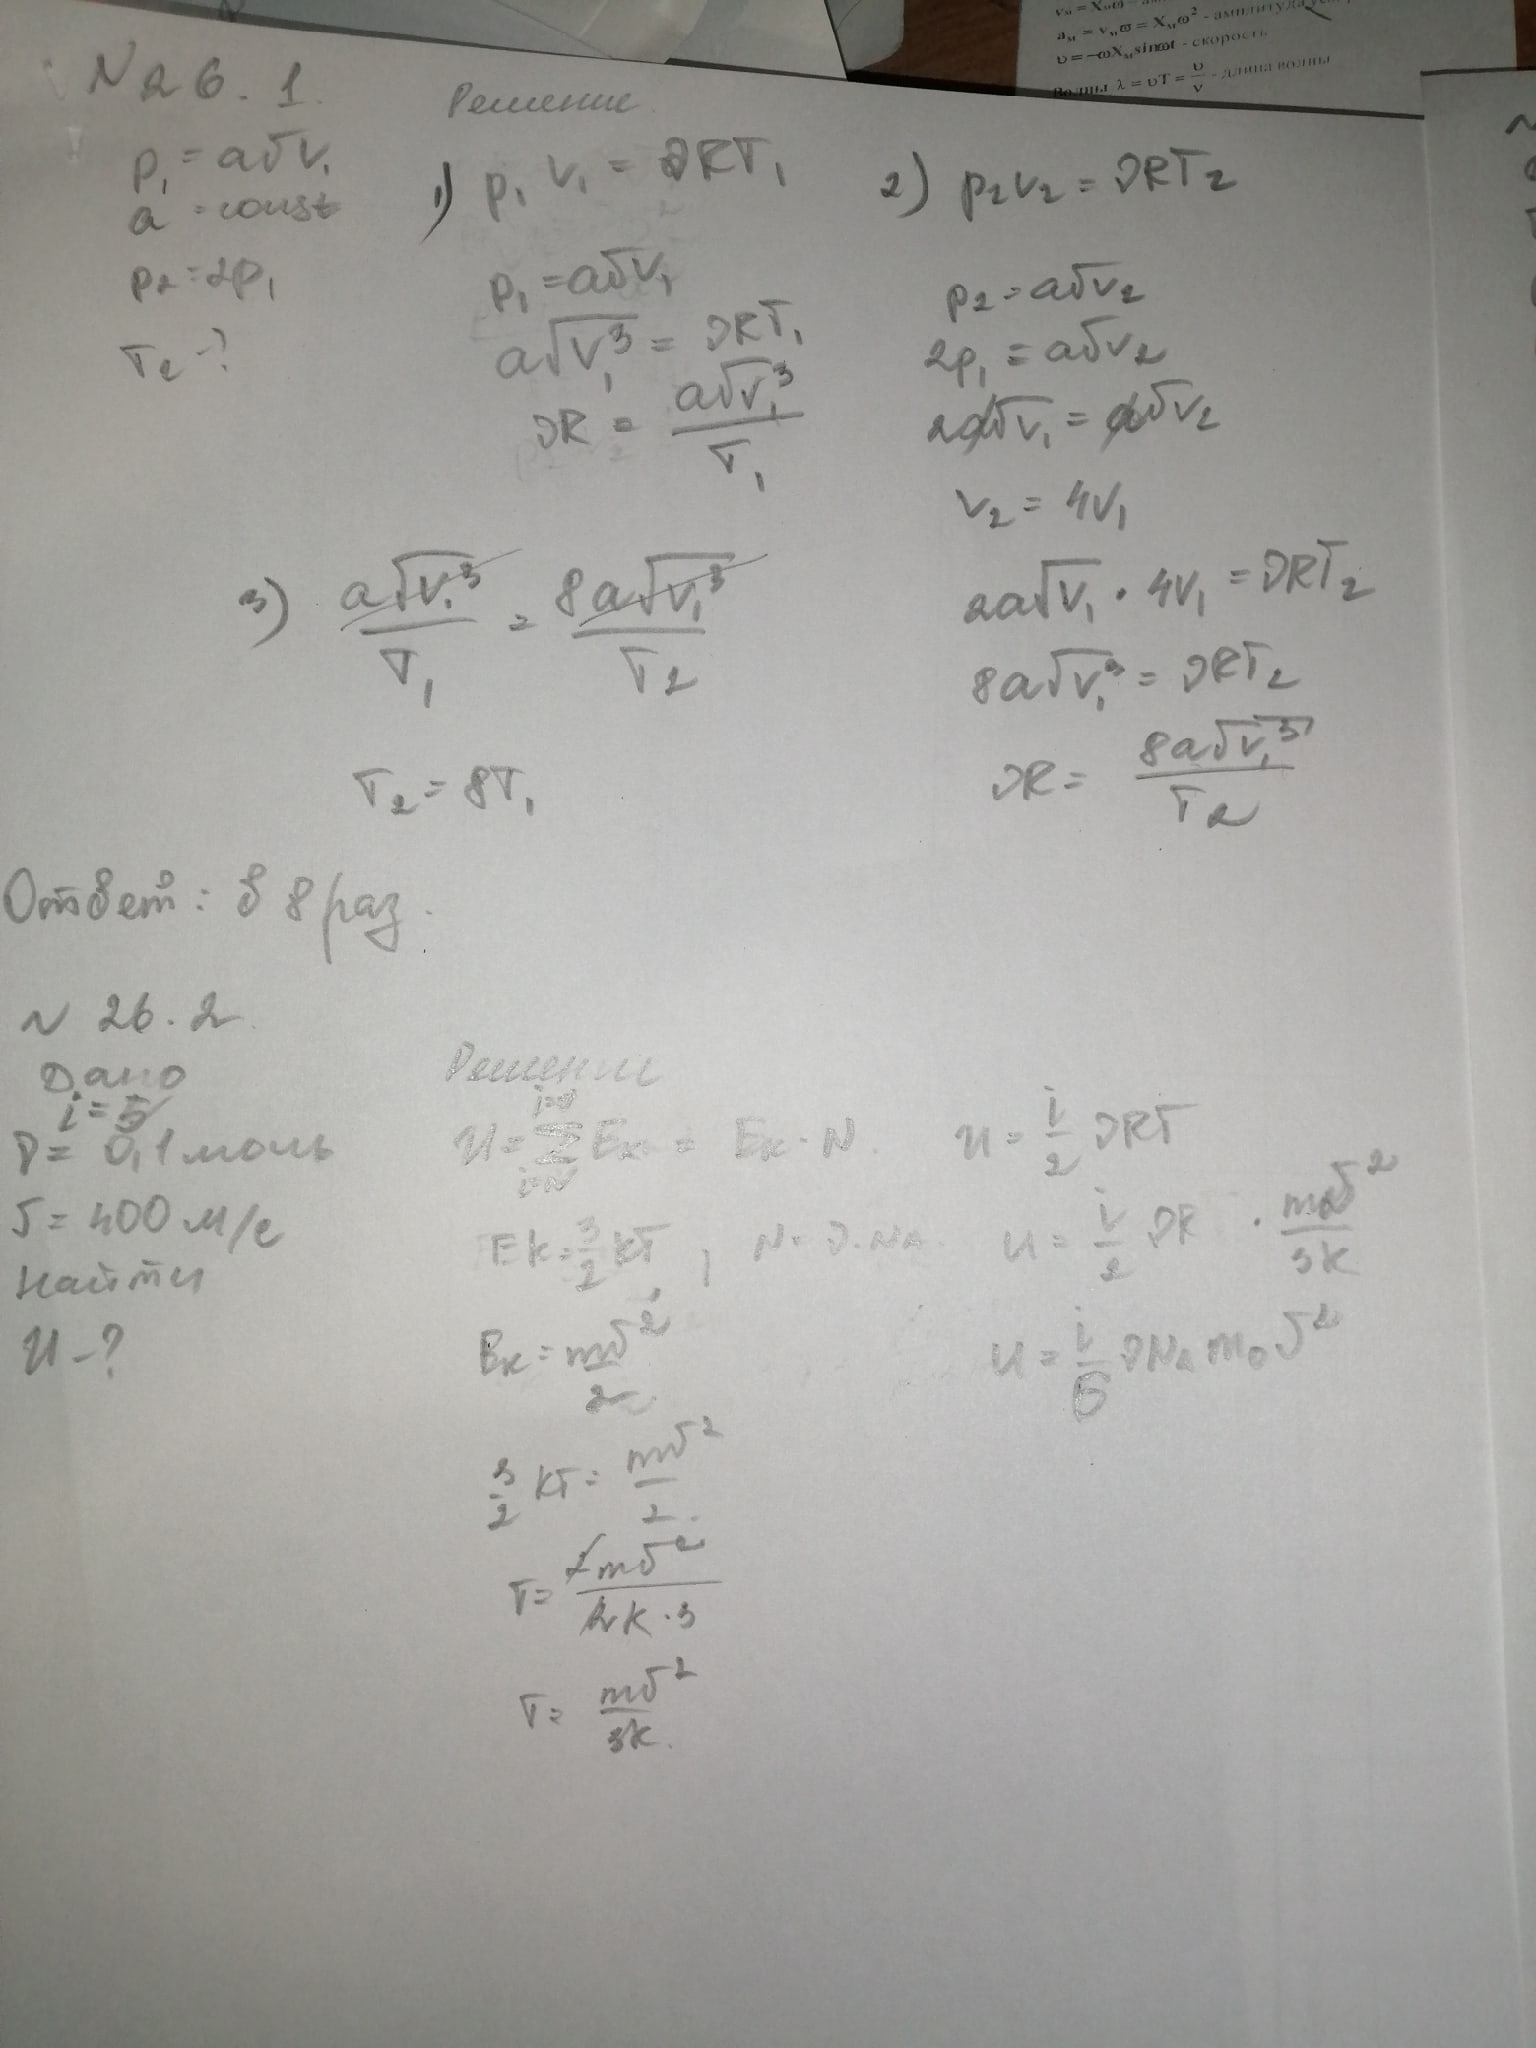 vм = Xмω - ам
aм = vмω = Xмω² - амплитуда уск
υ = -ωXм sinωt - скорость
Волны λ = υT = υ/ν - длина волны
N 26.1.
Решение
p₁ = a√V₁
a = const
p₂ = 2p₁
T₂ - ?
1) p₁ V₁ = νRT₁
p₁ = a√V₁
a√V₁³ = νRT₁
νR = a√V₁³ / T₁
2) p₂V₂ = νRT₂
p₂ = a√V₂
2p₁ = a√V₂
2a√V₁ = a√V₂
V₂ = 4V₁
2a√V₁ · 4V₁ = νRT₂
8a√V₁³ = νRT₂
νR = 8a√V₁³ / T₂
3) a√V₁³ / T₁ = 8a√V₁³ / T₂
T₂ = 8T₁
Ответ: в 8 раз.
N 26.2.
Дано
i = 5
ν = 0,1 моль
υ = 400 м/с
Найти
U - ?
Решение
U = Σ Eк = Eк · N.
Eк = 3/2 kT, N = ν·Nа.
Eк = mυ²/2
3/2 kT = mυ²/2.
T = 2mυ² / 2k·3
T = mυ²/3k.
U = i/2 νRT
U = i/2 νR · m₀υ²/3k
U = i/6 νNа m₀ υ²